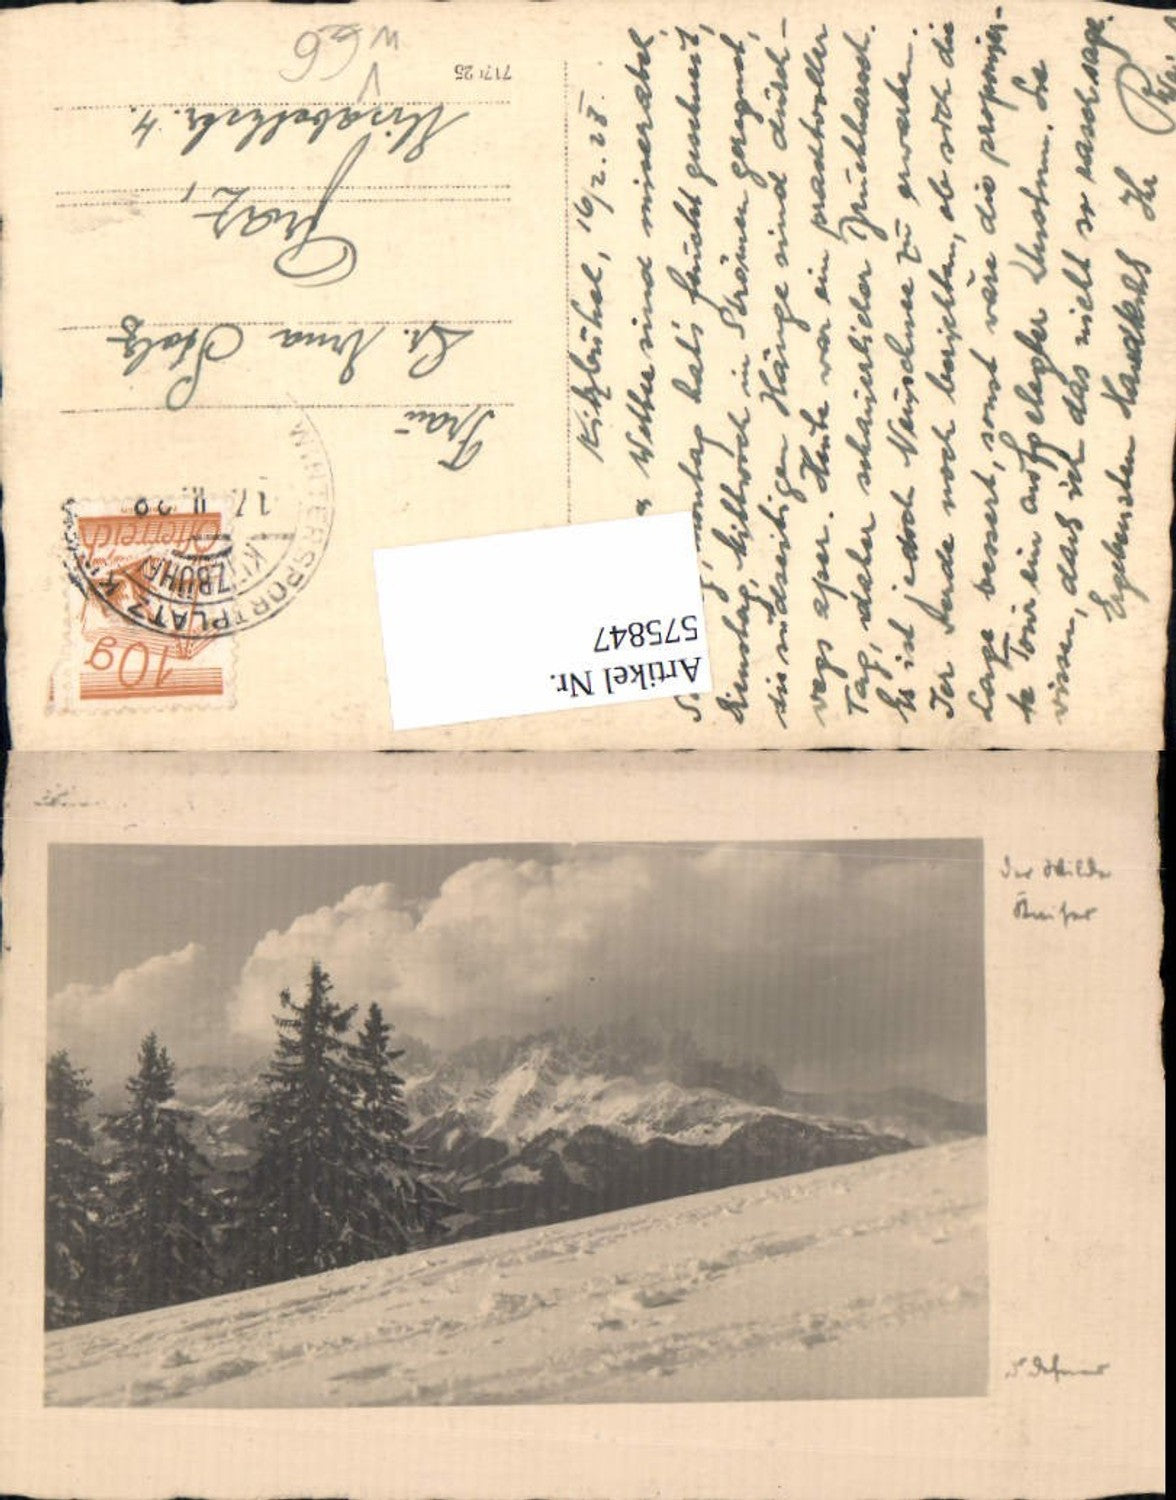 W66
717/25
Frau
Dr. Irma Stolz
Graz,
Elisabethstr. 4.
Österreich
10g
WINTERSPORTPLATZ
KITZBÜHEL
17. II. 28
Artikel Nr.
575847
Kitzbühel, 16/2. 28.
Wetter sind miserabel,
montag hat's feucht geschneit,
Dienstag, Mittwoch in Strömen geregnet,
die südseitigen Hänge sind durch-
wegs aper. Heute war ein prachtvoller
Tag, daher schauerlicher Bruchharsch.
Es ist jedoch Neuschnee zu erwarten.
Ihr Ende noch berichten, ob sich die
Lage bessert, sonst wäre die projektier-
te Tour ein aufgelegter Unsinn. Sie
wissen, dass ich das nicht so rasch sage.
Ergebensten Handkuss Ihr
Der Wilde
Kaiser